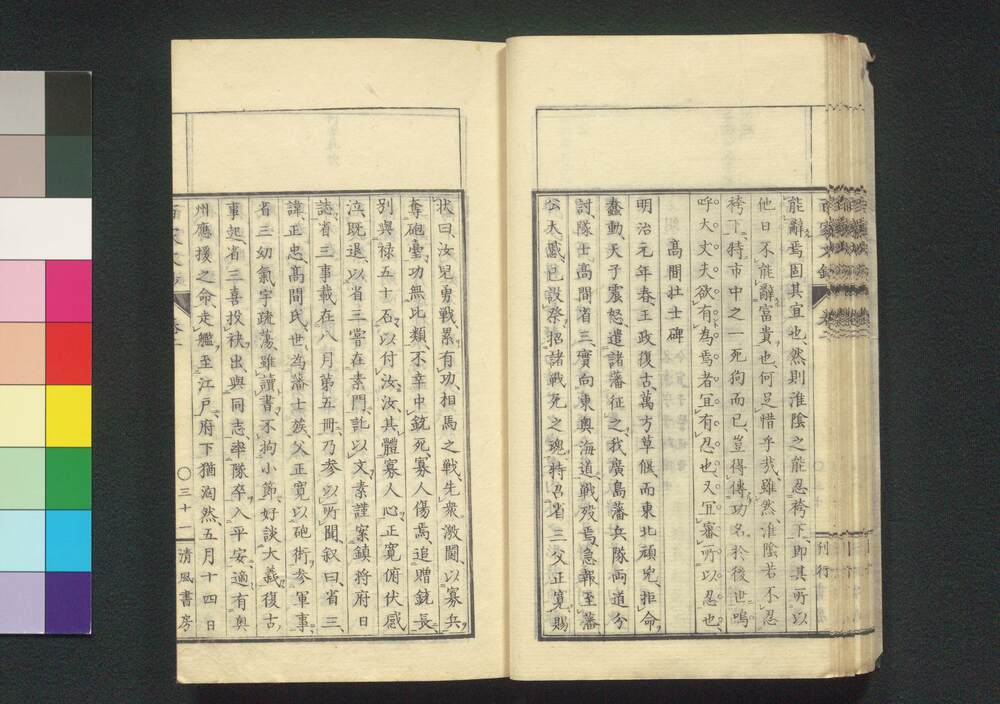 能辭焉固其宜也然則淮陰之能忍袴下即其所以
他日不能辭富貴也何足惜乎哉雖然淮陰若不忍
袴下特市中之一死狗而已豈得傳功名於後世嗚
呼大丈夫欲有為焉者宜有忍也又宜審所以忍也
高間壯士碑
明治元年春王政復古萬方草偃而東北頑兇拒命
蠢動天子震怒遣諸藩征之我廣島藩兵隊両道分
討隊士高間省三實向東奥海道戰歿焉急報至藩
公大慼已設祭招諸戰死之魂特召省三父正寛賜
狀曰汝兒勇戰累有功相馬之戰先衆激鬪以寡兵
奪砲臺功無比類不幸中銃死寡人傷焉追贈銃長
別與禄五十石以付汝汝其體寡人心正寛俯伏感
泣既退以省三嘗在素門託以文素謹案鎮將府日
誌省三事載在八月第五冊乃參以所聞叙曰省三
諱正忠高間氏世為藩士蔟父正寛以砲術参軍事
省三幼氣宇疏蕩雖讀書不拘小節好談大義復古
事起省三喜投袂出與同志率隊卒入平安適有奥
州應援之命走艦至江戸府下猶洶然五月十四日
〇三十一
清風書房
刊行